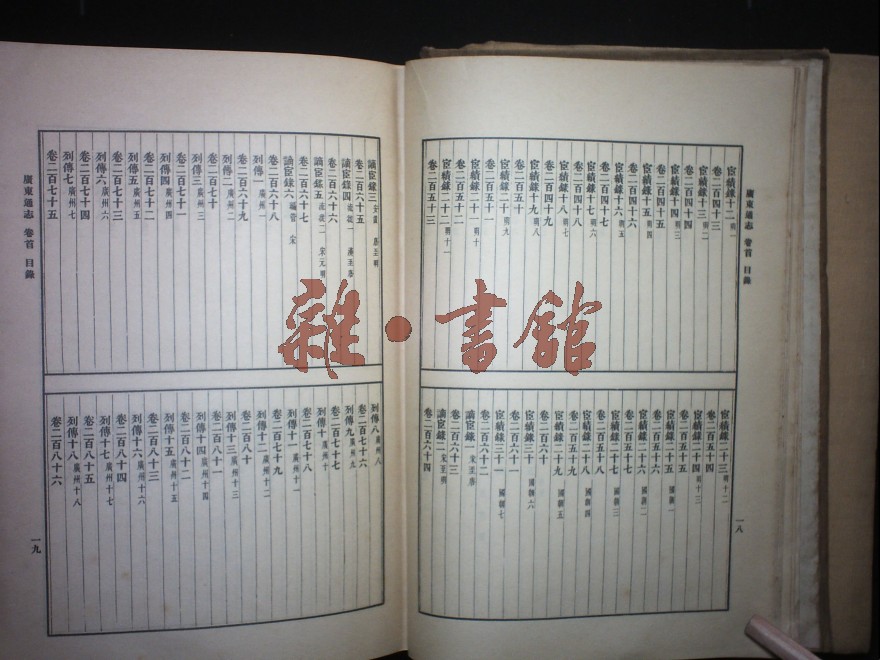 廣東通志 卷首 目錄
一八
宦績錄十二 明一
卷二百四十三
宦績錄十三 明二
卷二百四十四
宦績錄十四 明三
卷二百四十五
宦績錄十五 明四
卷二百四十六
宦績錄十六 明五
卷二百四十七
宦績錄十七 明六
卷二百四十八
宦績錄十八 明七
卷二百四十九
宦績錄十九 明八
卷二百五十
宦績錄二十 明九
卷二百五十一
宦績錄二十一 明十
卷二百五十二
宦績錄二十二 明十一
卷二百五十三
宦績錄二十三 明十二
卷二百五十四
宦績錄二十四 明十三
卷二百五十五
宦績錄二十五 國朝一
卷二百五十六
宦績錄二十六 國朝二
卷二百五十七
宦績錄二十七 國朝三
卷二百五十八
宦績錄二十八 國朝四
卷二百五十九
宦績錄二十九 國朝五
卷二百六十
宦績錄三十 國朝六
卷二百六十一
宦績錄三十一 國朝七
卷二百六十二
謫宦錄一
卷二百六十三
謫宦錄二 宋至明
卷二百六十四
謫宦錄三 唐至明
卷二百六十五
謫宦錄四 流徙一 漢至唐
卷二百六十六
謫宦錄五 流徙二 宋元明
卷二百六十七
謫宦錄六 宋
卷二百六十八
列傳一 廣州一
卷二百六十九
列傳二 廣州二
卷二百七十
列傳三 廣州三
卷二百七十一
列傳四 廣州四
卷二百七十二
列傳五 廣州五
卷二百七十三
列傳六 廣州六
卷二百七十四
列傳七 廣州七
卷二百七十五
列傳八 廣州八
卷二百七十六
列傳九 廣州九
卷二百七十七
列傳十 廣州十
卷二百七十八
列傳十一 廣州十一
卷二百七十九
列傳十二 廣州十二
卷二百八十
列傳十三 廣州十三
卷二百八十一
列傳十四 廣州十四
卷二百八十二
列傳十五 廣州十五
卷二百八十三
列傳十六 廣州十六
卷二百八十四
列傳十七 廣州十七
卷二百八十五
列傳十八 廣州十八
卷二百八十六
廣東通志 卷首 目錄
一九
雜·書館